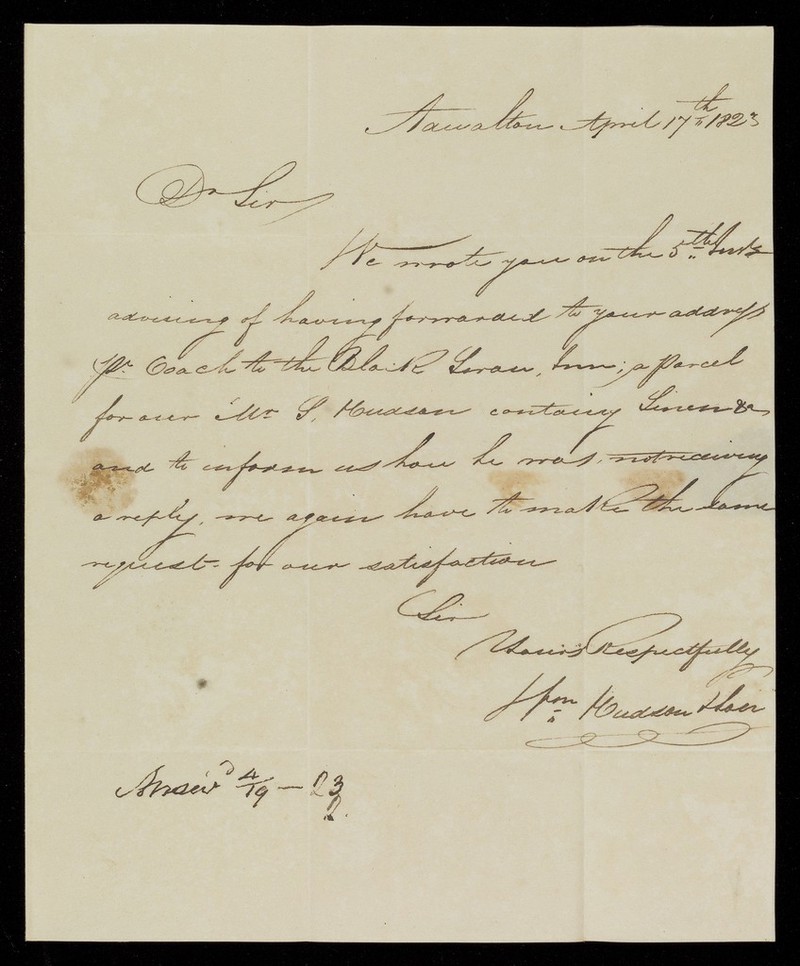 April 17th 1823
Dr Sir
We wrote you on the 5th Inst
advising of having forwarded to your address
pr Coach to the Black Swan, Inn; a parcel
for our Mr S, Hudson containg Linen &c
and to inform us how he was, not receiving
a reply, we again have to make the same
request for our satisfaction
Sir
Yours Respectfully
Hudson
Answd 4/19 – 23
2.